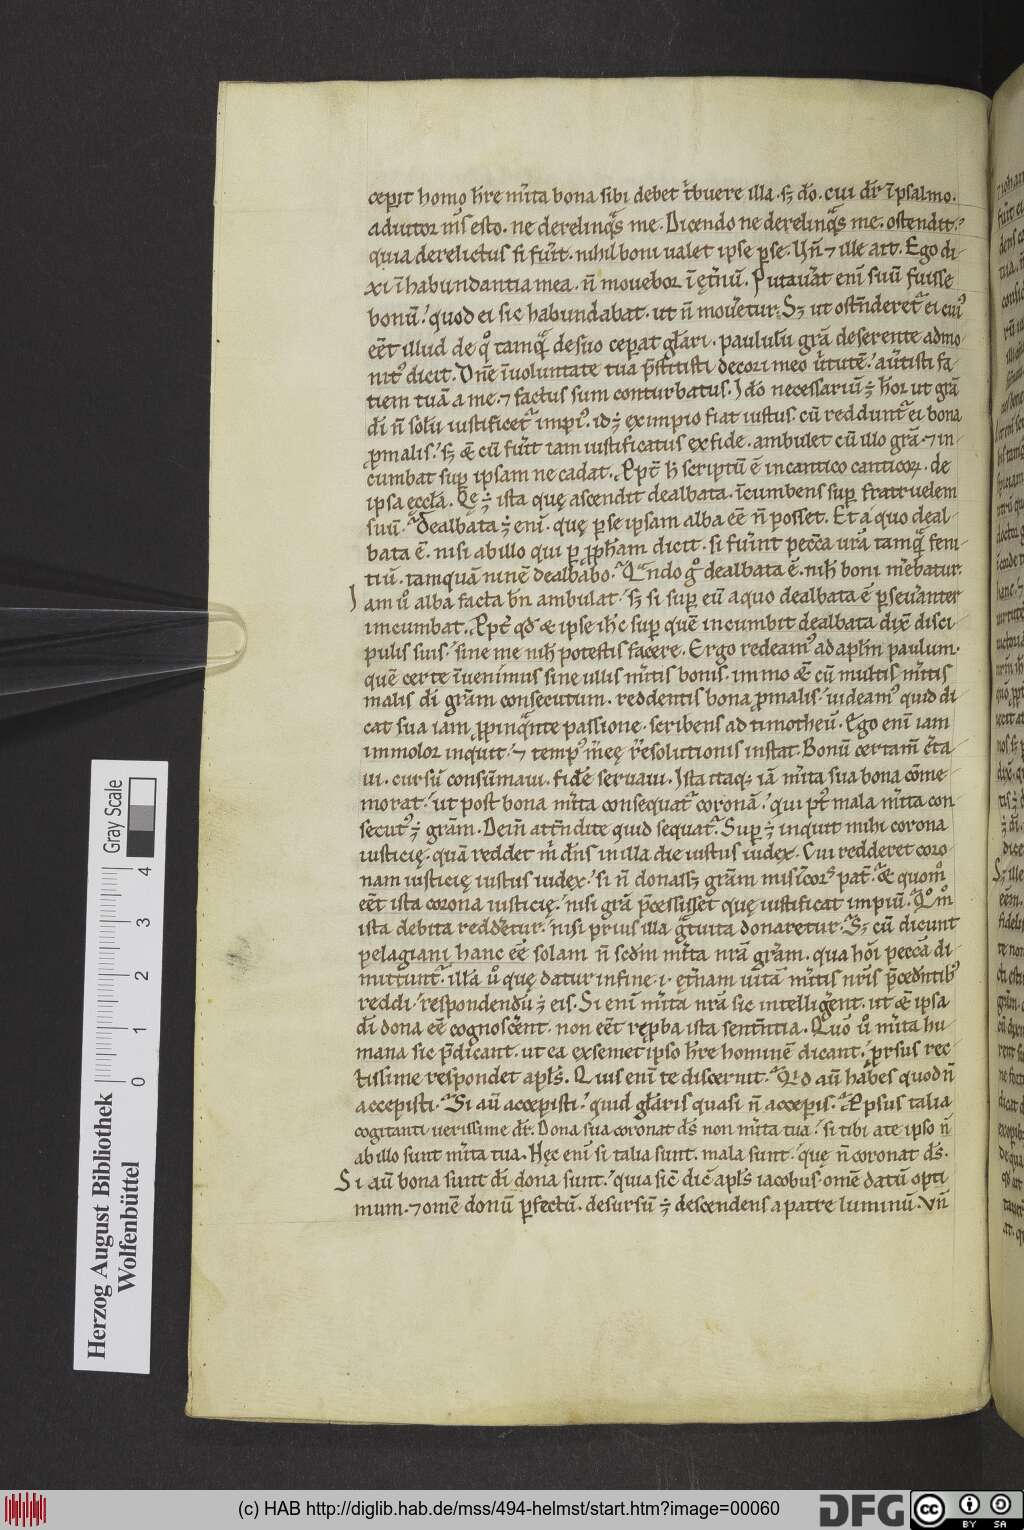 cep̄it homo h̄re mīta bona sibi debet t̄buere illa. sꝫ dō. cui dr̄ ī psalmo.
adiutor m̄s esto. ne derelinqͣs me. Dicendo ne derelinqͣs me. ostendit.
quia derelictus si fuīt. nihil boni ualet ipse ꝑse. Un̄ ⁊ ille ait. Ego di
xi ī habundantia mea. n̄ mouebor ī ęt̄nū. Putauāt enī suū fuisse
bonū. quod ei sic habundabat. ut n̄ moue͛tur. Sꝫ ut ostn̄deret᷑ ei cuiꝰ
eēt illud de qͦ tamqͣ de suo ceperat gl̄ari. paululū gr̄a deserente admo
nitꝰ dicit. Dn̄e ī uoluntate tua p̄stitisti decori meo ūtutē. au͛tisti fa
tiem tuā a me. ⁊ factus sum conturbatus. Ido necessariū ÷ hōi ut gr̄a
dī n̄ solū iustificet᷑ impiꝰ. id ÷ ex impio fiat iustus. cū reddunt᷑ ei bona
ꝓ malis. sꝫ æ cū fuīt iam iustificatus ex fide. ambulet cū illo gr̄a. ⁊ in
cumbat suꝑ ipsam ne cadat. Ꝓpt̄ h̄ scriptū ē in cantico canticoꝝ. de
ipsa eccl̄a. Qę ÷ ista quę ascendit dealbata. īcumbens suꝑ fratruelem
suū. Dealbata ÷ enī. quę ꝑ se ipsam alba eē n̄ posset. Et a quo deal
bata ē. nisi ab illo qui ꝑ ꝓph̄am dicit. si fūint pecc̄a ur̄a tamqͣ feni
tiū. tamquā niuē dealbabo. Qͣndo gͦ dealbata ē. nih̄ boni me͛batur.
Iam uͦ alba facta bn̄ ambulat. sꝫ si suꝑ eū a quo dealbata ē ꝑseue͛anter
incumbat. Ꝓpt̄ qd̄ æ ipse ih̄c suꝑ quē incumbit dealbata dix̄ disci
pulis suis. sine me nih̄ potestis facere. Ergo redeamꝰ ad apl̄m paulum.
quē certe īuenimus sine ullis mītis bonis. immo æ cū multis mītis
malis dī gr̄am consecutum. reddentis bona ꝓ malis. uideamꝰ quid di
cat sua iam ꝓpinqͣnte passione. scribens ad timotheū. Ego enī iam
immolor inquit. ⁊ tempꝰ m̄eę resolutionis instat. Bonū certam̄ c̄ta
ui. cursū consūmaui. fidē seruaui. Ista itaqꝫ iā mīta sua bona cōme
morat. ut post bona mīta consequat᷑ coronā. qui pꝰt mala mīta con
secutꝰ ÷ gr̄am. Dein̄ attn̄dite quid sequat᷑. Suꝑ ÷ inquit mihi corona
iusticię. quā reddet m̄ dn̄s in illa die iustus iudex. Cui redderet coro
nam iusticię iustus iudex. si n̄ donassꝫ gr̄am misīcors pat̄. æ quomͦ
eēt ista corona iusticię. nisi gr̄a p̄cessisset quę iustificat impiū. Qͦmͦ
ista debita redde͛tur. nisi prius illa gͣtuita donaretur. Sꝫ cū dicunt
pelagiani hanc eē solam n̄ scd̄m mīta nr̄a gr̄am. qua hōi pecc̄a di
mittunt᷑. illā uͦ quę datur in fine .i. ęt̄nam uitā mītis nr̄is p̄cedn̄tibꝰ
reddi. respondendū ÷ eis. Si enī mīta nr̄a sic intelligēnt. ut æ ipsa
dī dona eē cognosce͛nt. non eēt reꝓba ista sentn̄tia. Quō uͦ mīta hu
mana sic p̄dicant. ut ea ex semet ipso h̄re hominē dicant. ꝓrsus rec
tissime respondet apl̄s. Quis enī te discernit. Qͥd aū habes quod n̄
accepisti. Si aū accepisti. quid gl̄aris quasi n̄ acceꝑis. Ꝓpsus talia
cogitanti uerissime dr̄. Dona sua coronat ds̄ non mīta tua. si tibi a te ipso n̄
ab illo sunt mīta tua. Hęc enī si talia sunt. mala sunt. quę n̄ coronat ds̄.
Si aū bona sunt dī dona sunt. quia sic̄ dic̄ apl̄s iacobus. omē datū opti
mum. ⁊ omē donū ꝑfectū. desursū ÷ descendens a patre luminū. Vn̄
Herzog August Bibliothek
Wolfenbüttel
Gray Scale
0 1 2 3 4
(c) HAB http://diglib.hab.de/mss/494-helmst/start.htm?image=00060
DFG
cc BY SA